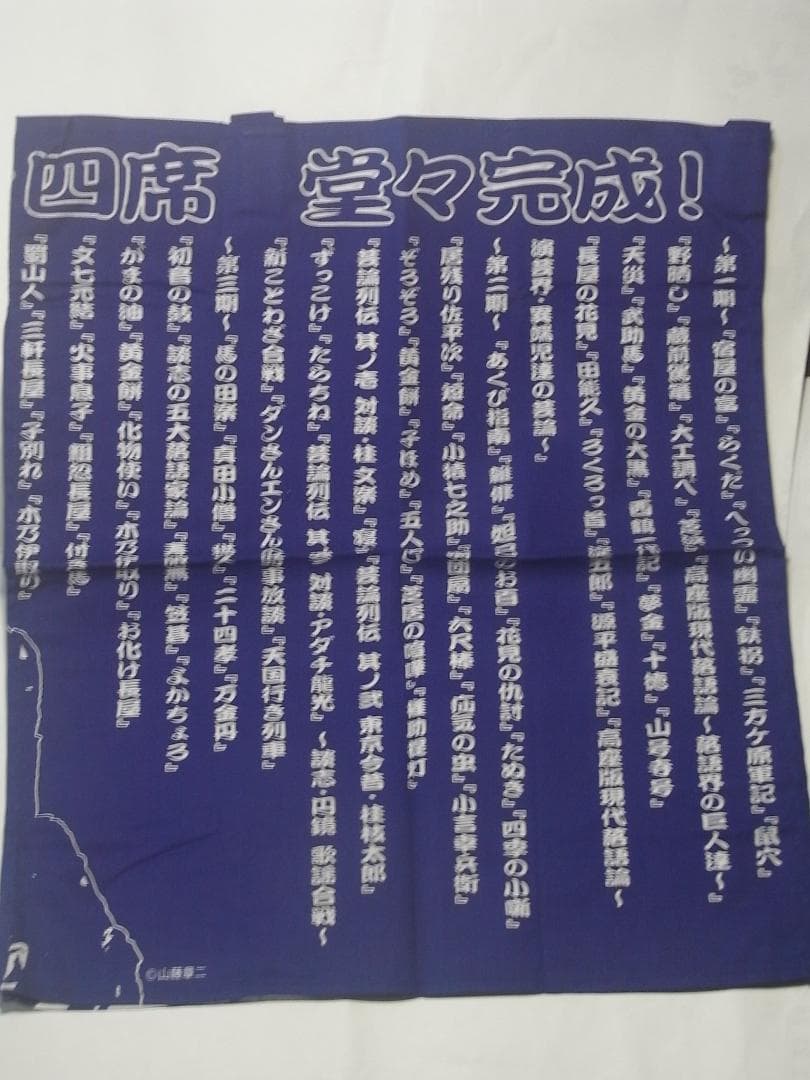 四席 堂々完成!
~第一期~『宿屋の富』『らくだ』『へっつい幽霊』『鉄拐』『三方ヶ原軍記』『鼠穴』
『野晒し』『蔵前駕籠』『大工調べ』『芝浜』『高座版現代落語論~落語界の巨人達~』
『天災』『武助馬』『黄金の大黒』『西鶴一代記』『夢金』『十徳』『山号寺号』
『長屋の花見』『田能久』『ろくろっ首』『淀五郎』『源平盛衰記』『高座版現代落語論~
演芸界・異端児達の芸論~』
~第二期~『あくび指南』『雑俳』『妲己のお百』『花見の仇討』『たぬき』『四季の小噺』
『居残り佐平次』『短命』『小猿七之助』『首屋』『六尺棒』『疝気の虫』『小言幸兵衛』
『ぞろぞろ』『黄金餅』『子ほめ』『五人し』『芝居の喧嘩』『権助提灯』
『芸論列伝 其ノ壱 対談・桂文楽』『寝』『芸論列伝 其ノ弐 東京今昔・桂枝太郎』
『ずっこけ』『たらちね』『芸論列伝 其ノ 対談・アダチ龍光』『~談志・円鏡 歌謡合戦~
『新ことわざ合戦』『ダンさんエンさん時事放談』『天国行き列車』
~第三期~『馬の田楽』『真田小僧』『二十四孝』『万金丹』
『初音の鼓』『談志の五大落語家論』『笠碁』『よかちょろ』
『がまの油』『黄金餅』『化物使い』『木乃伊取り』『お化け長屋』
『文七元結』『火事息子』『粗忽長屋』『付き馬』
『蜀山人』『三軒長屋』『子別れ』『木乃伊取り』
©山藤章二